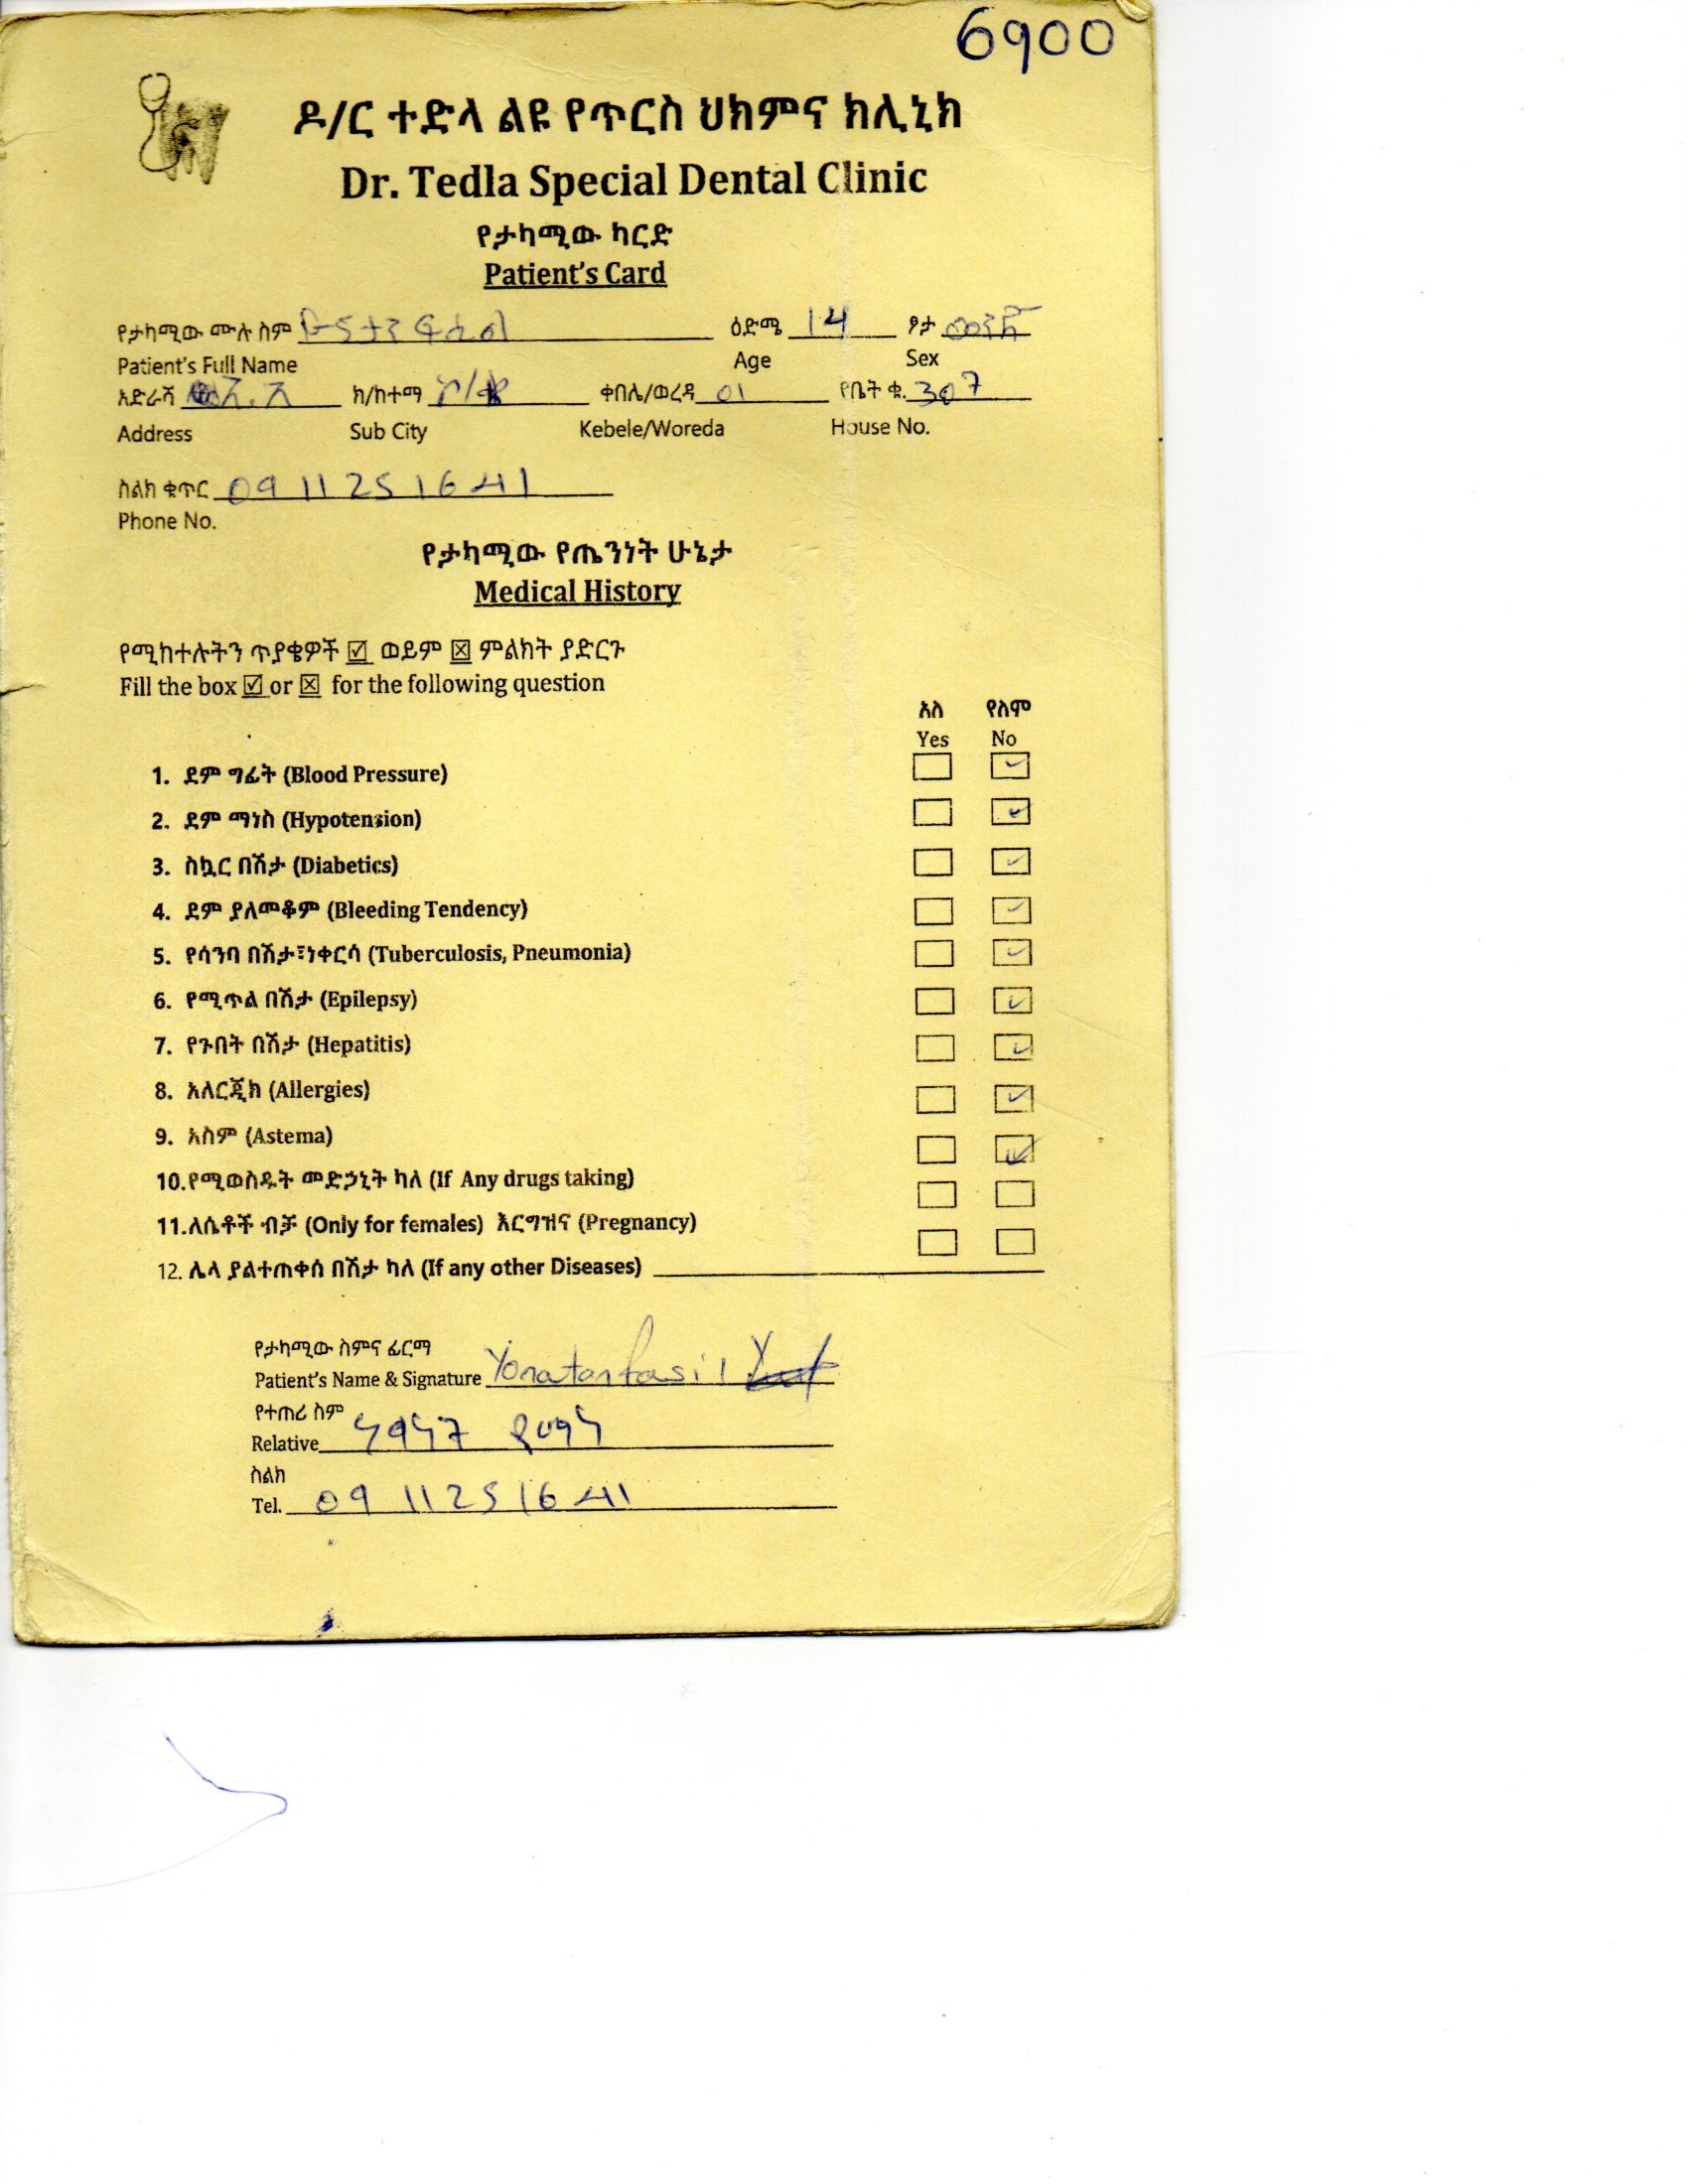 6900
ዶ/ር ተድላ ልዩ የጥርስ ህክምና ክሊኒክ
Dr. Tedla Special Dental Clinic
የታካሚው ካርድ
Patient's Card
የታካሚው ሙሉ ስም ዮናታን ፋሲል ዕድሜ 14 ፆታ ወንድ
Patient's Full Name Age Sex
አድራሻ ክ/ከተማ ቀበሌ/ወረዳ 01 የቤት ቁ. 307
Address Sub City Kebele/Woreda House No.
ስልክ ቁጥር 0911251641
Phone No.
የታካሚው የጤንነት ሁኔታ
Medical History
የሚከተሉትን ጥያቄዎች ☑ ወይም ☒ ምልክት ያድርጉ
Fill the box ☑ or ☒ for the following question
አለ የለም
Yes No
1. ደም ግፊት (Blood Pressure)
2. ደም ማነስ (Hypotension)
3. ስኳር በሽታ (Diabetics)
4. ደም ያለመቆም (Bleeding Tendency)
5. የሳንባ በሽታ፣ነቀርሳ (Tuberculosis, Pneumonia)
6. የሚጥል በሽታ (Epilepsy)
7. የጉበት በሽታ (Hepatitis)
8. አለርጂክ (Allergies)
9. አስም (Astema)
10.የሚወስዱት መድኃኒት ካለ (If Any drugs taking)
11.ለሴቶች ብቻ (Only for females) እርግዝና (Pregnancy)
12. ሌላ ያልተጠቀሰ በሽታ ካለ (If any other Diseases)
የታካሚው ስምና ፊርማ
Patient's Name & Signature Yonatan fasil
የተጠሪ ስም
Relative
ስልክ
Tel. 0911251641